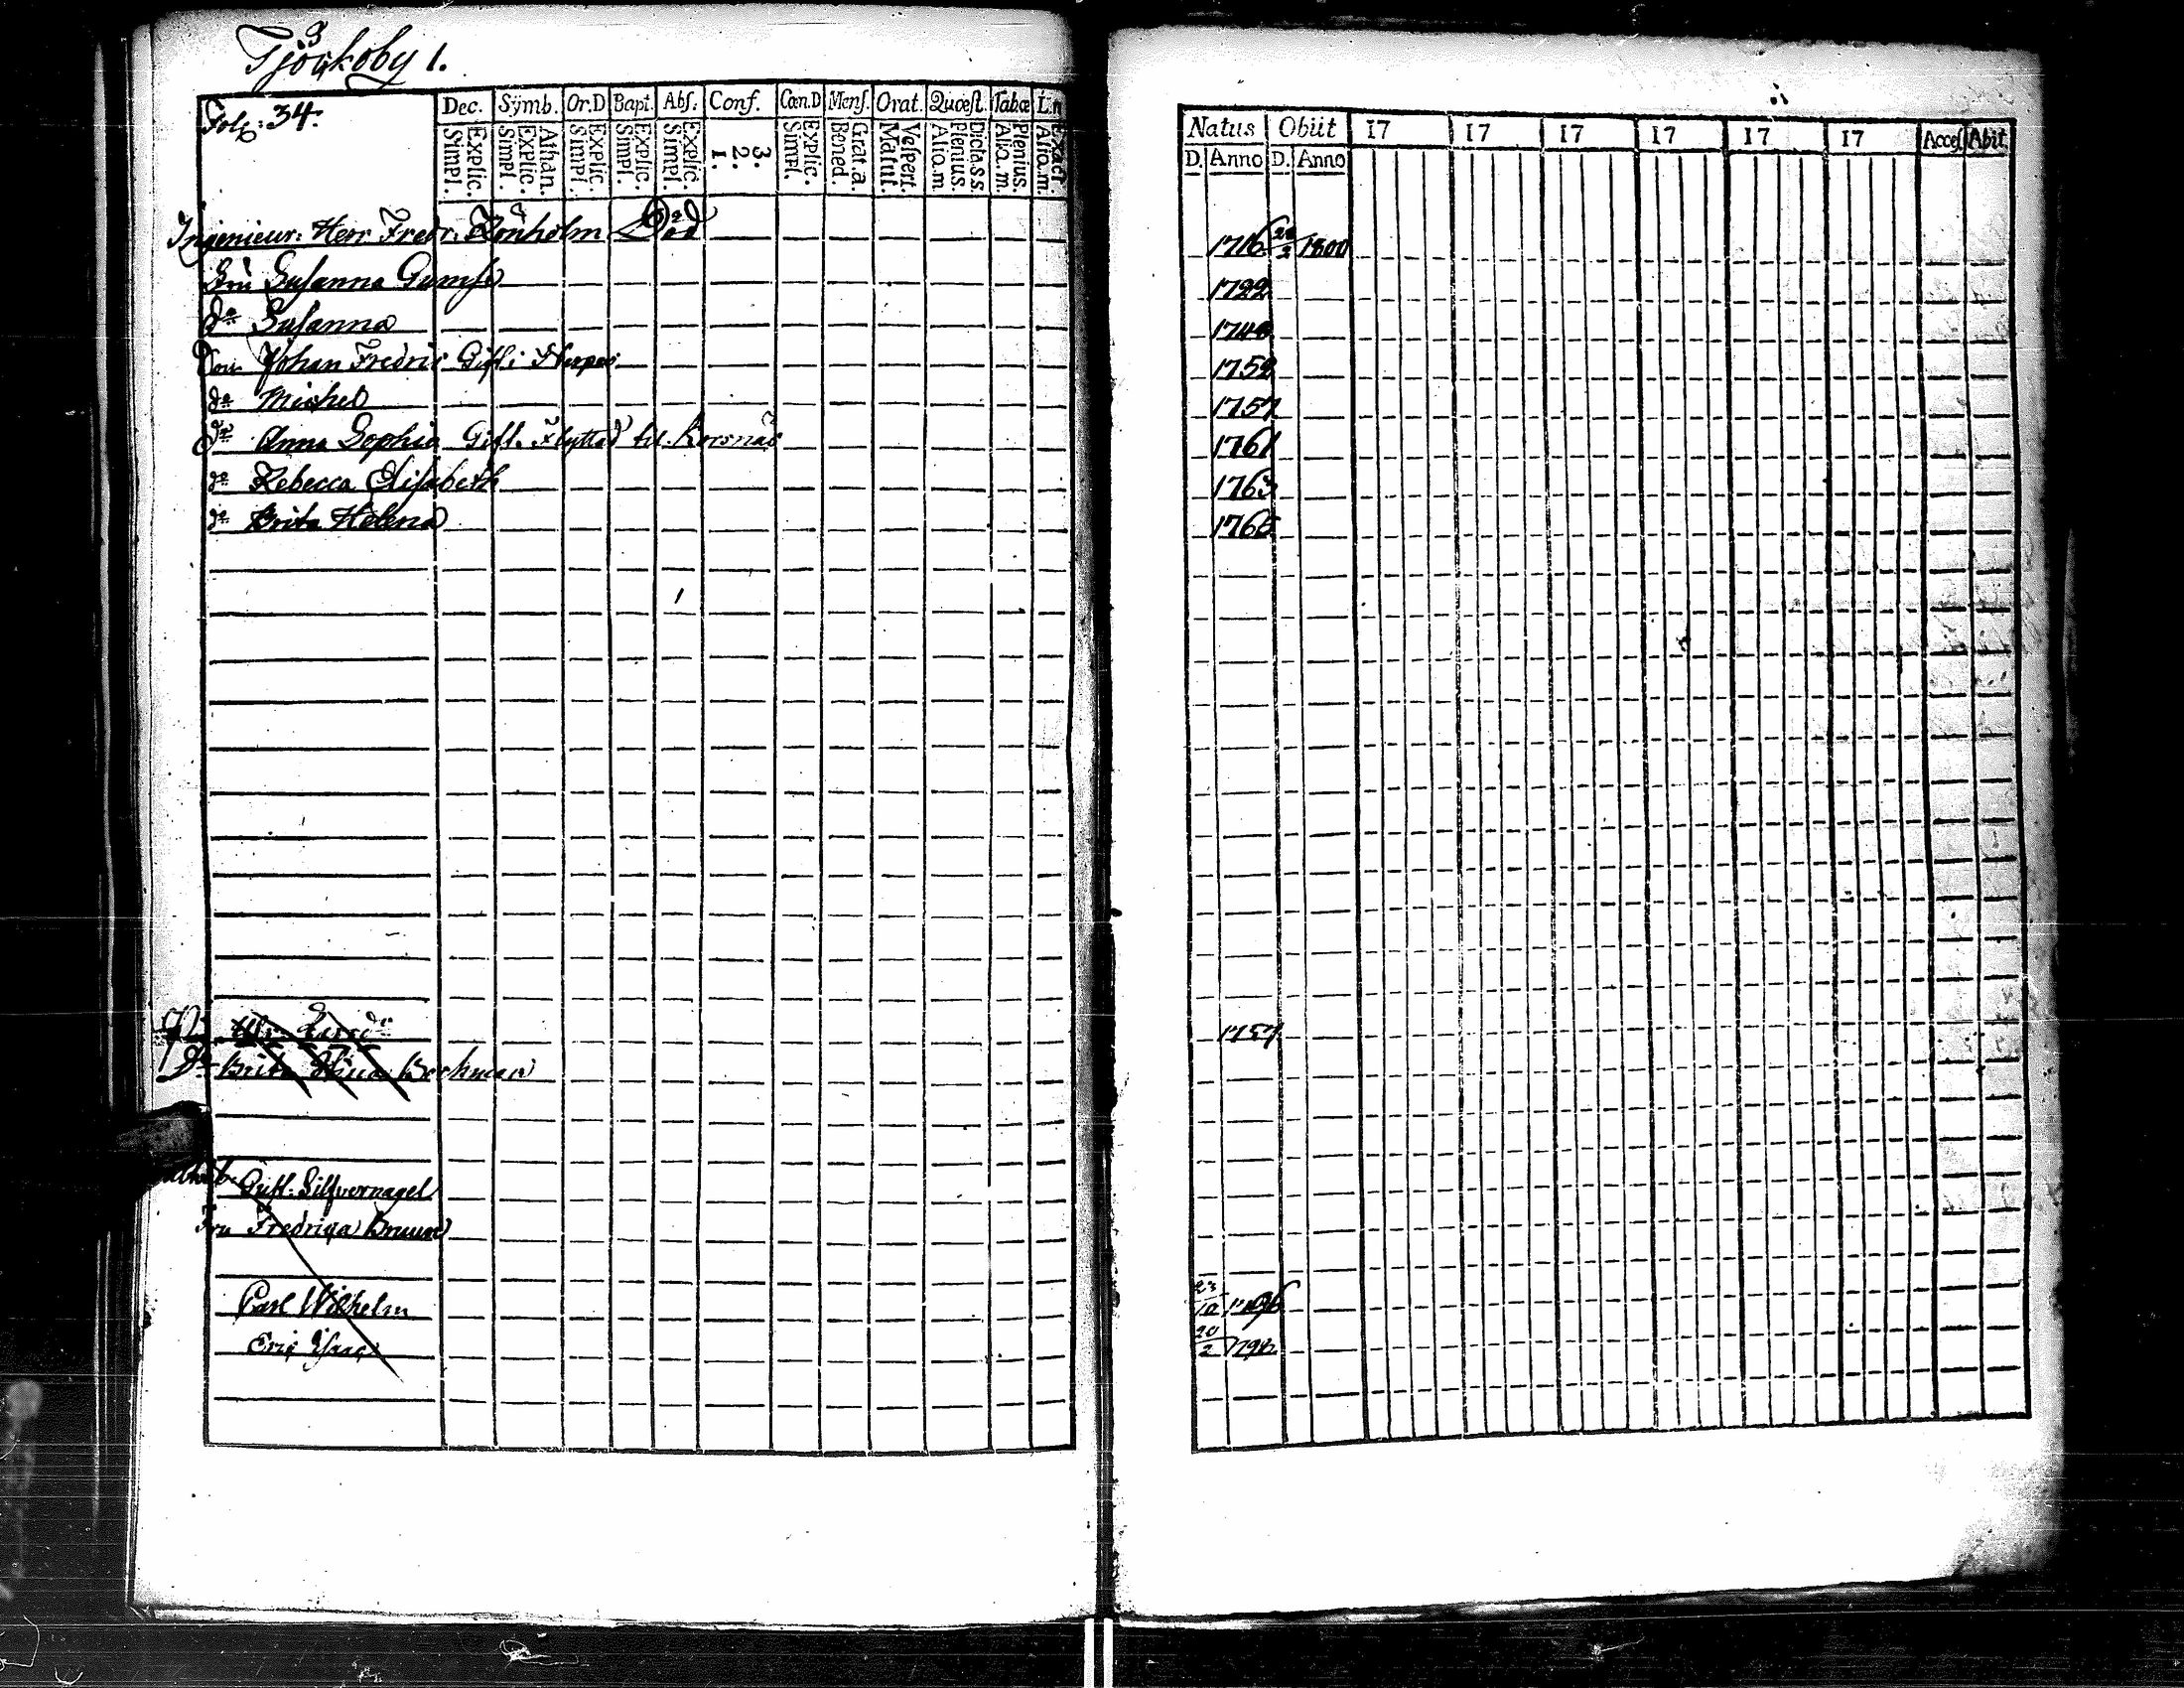 Tjöckoby 1.
Fol: 34.
Dec. Symb. Or.D Bapt. Abs: Conf. Cœn.D Mens. Orat. Quœst. Tabœ L.n
Explic. Simpl. Athan. Explic. Simpl. Explic. Simpl. Explic. Simpl. Explic. Simpl. 3. 2. 1. Explic. Simpl. Grat.a. Bened. Vespert. Matut. Dicta.s.s. Plenius. Aliq.m. Plenius. Aliq.m. Exact Aliq.m.
Natus Obiit 17 17 17 17 17 17 Acces Abit.
D. Anno D. Anno
Ingenieur: Herr Fredr: Rönholm Död 1716 2 1800
Fru Susanna Gumse 1722
do Susanna
Son Johan Fredric Gift: 1752
do Michel 1757
do Anna Sophia Gift. Flyttad til Korsnäs 1761
do Rebecca Elisabeth 1763
do Brita Helena 1765
1757
do Brita Beckman
Gust: Silfvernagel
Fru Fredriqa Bruun
Carl Wilhelm 23/10 1796
Eric Isaac 20/2